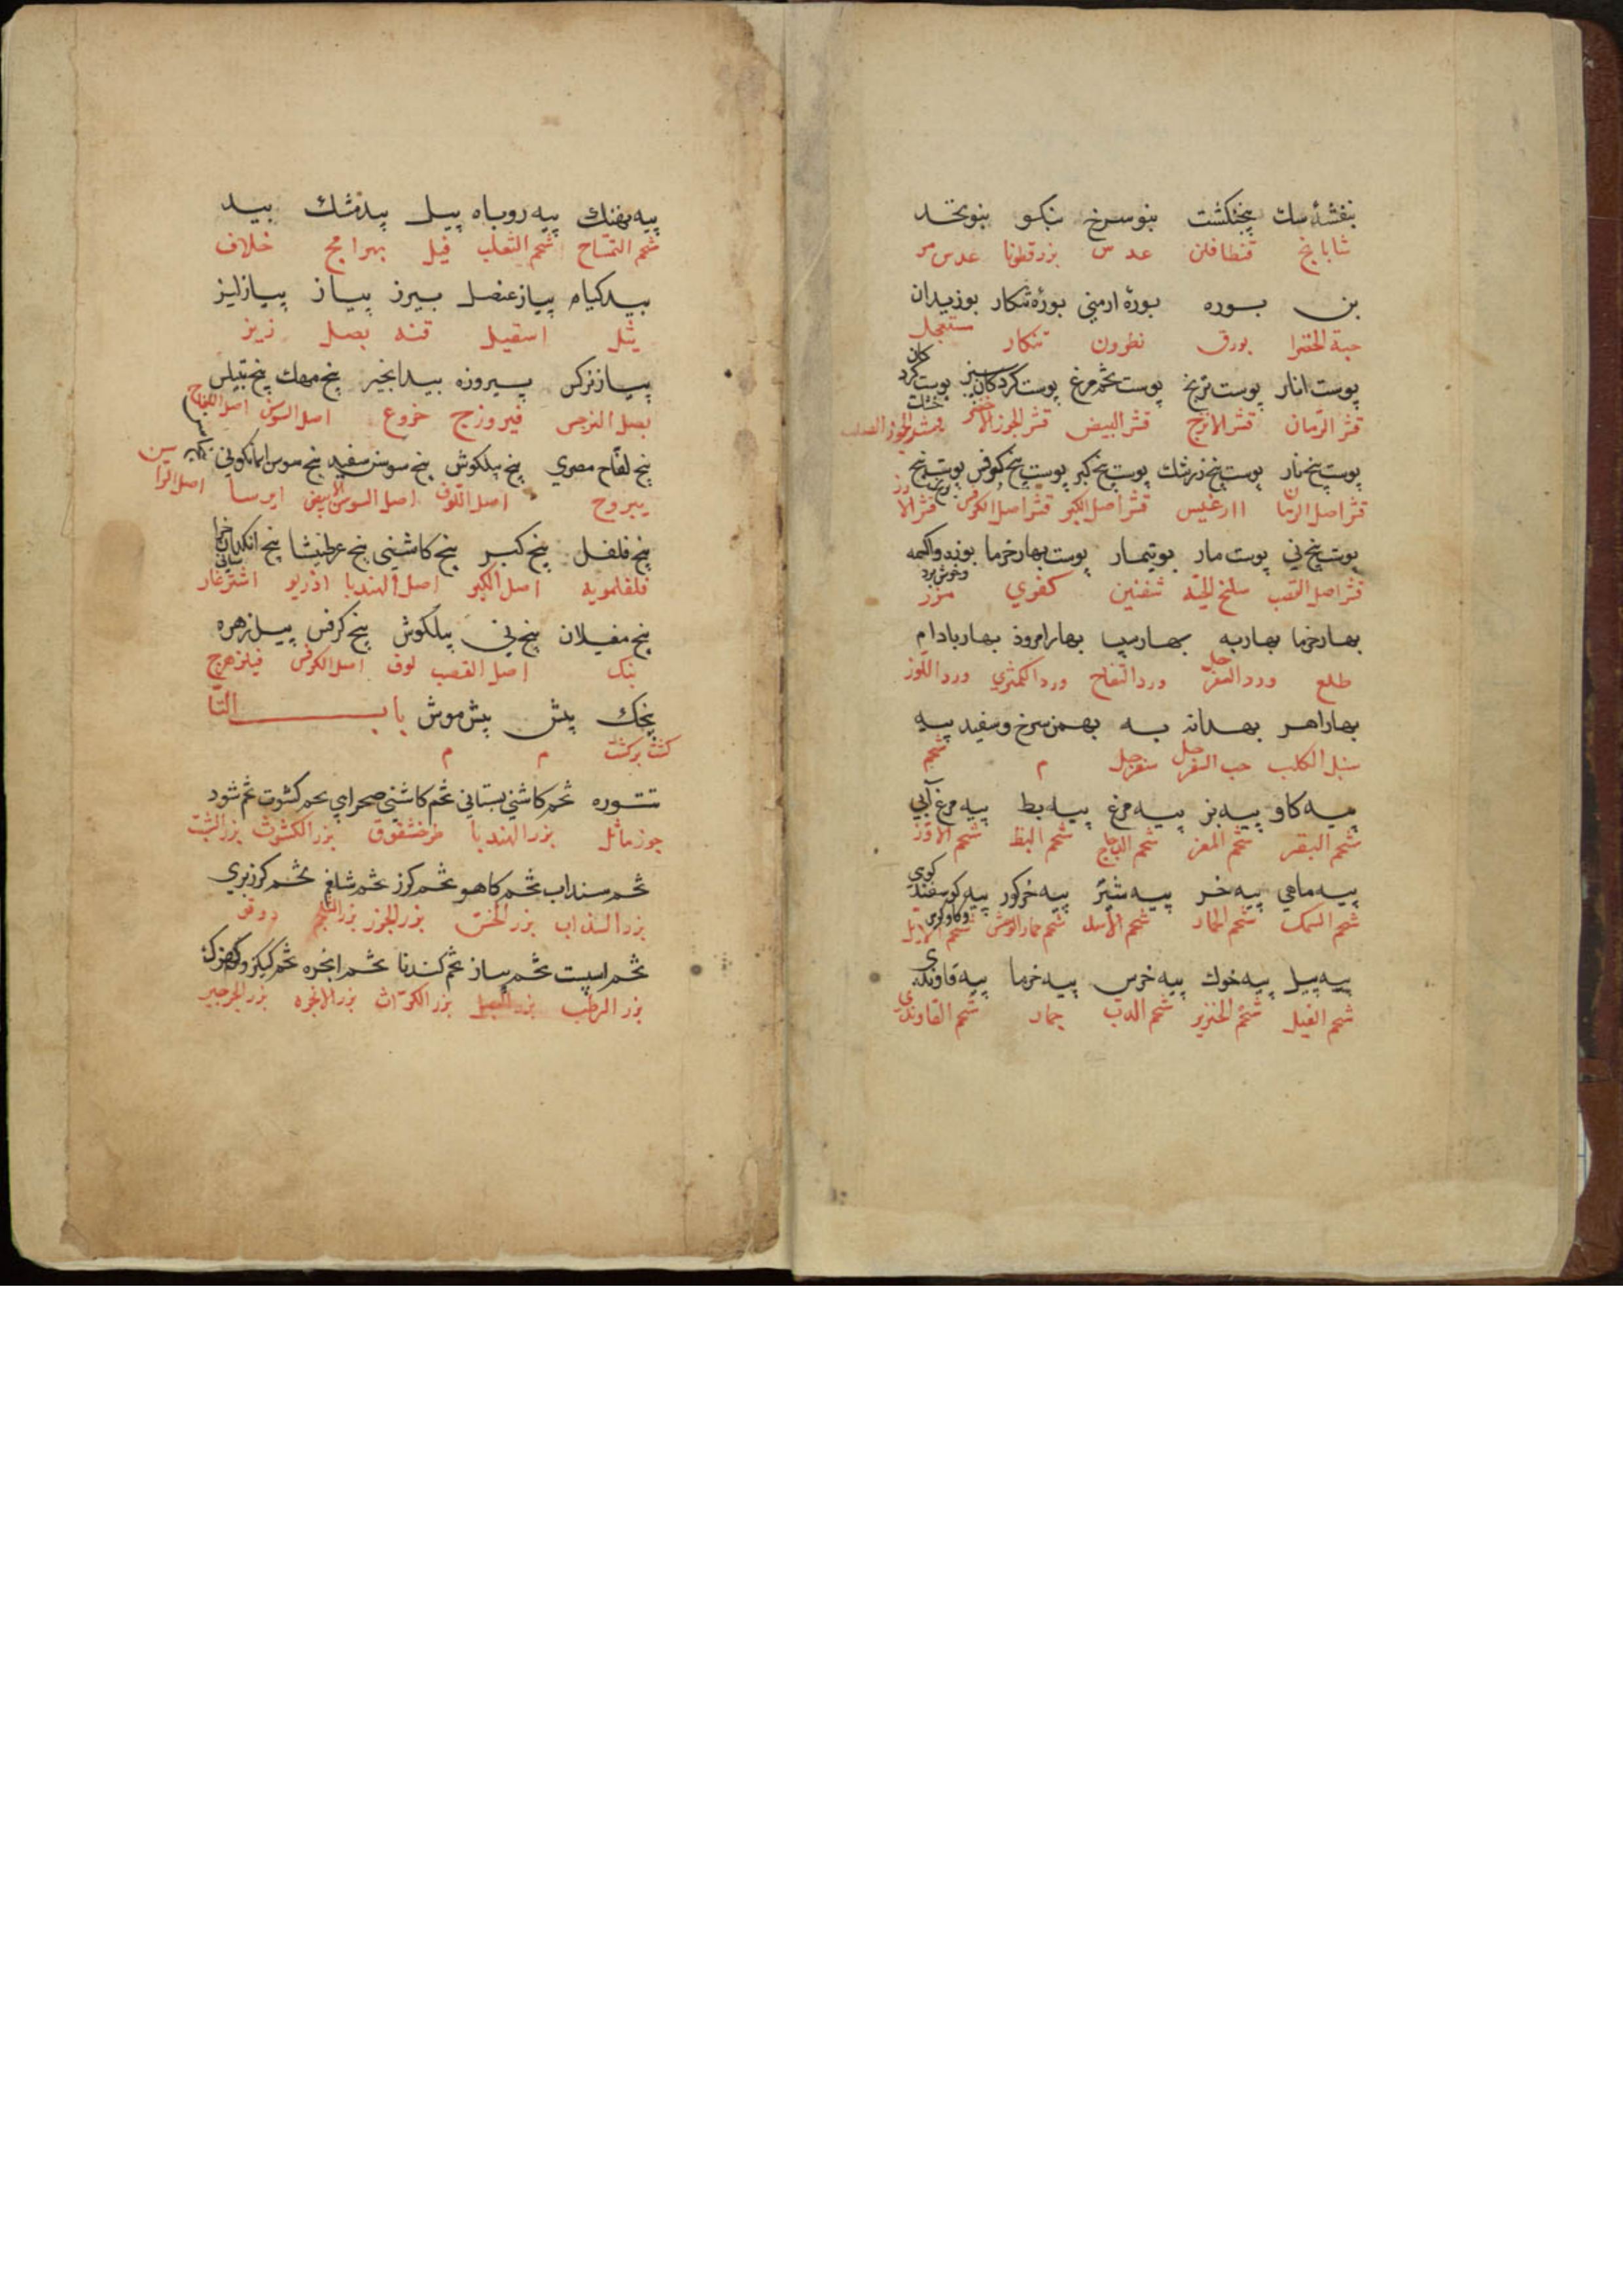 بنفشهٔ سك پنجنكشت بنو سرخ بنكو بنو نخد
شابابخ قنطافلن عدس بزرقطونا عدس مر
بن بوره بورهٔ ارمني بورهٔ تنكار بوزيدان
حبة الخضرا بورق نطرون تنكار مستعجل
پوست انار پوست ترنج پوست تخم مرغ پوست كردكان سبز پوست كرد كان خشك
قشر الرمان قشر الاترج قشر البيض قشر الجوز الاخضر قشر الجوز الصلب
پوست بيخ نار پوست بيخ زرشك پوست بيخ كبر پوست بيخ كرفس پوست بيخ
قشر اصل الرمان ارغيس قشر اصل الكبر قشر اصل الكرفس
پوست بيخ ني پوست مار بوتيمار پوست بهار خرما بوزه
قشر اصل القصب سلخ الحية شفنين كفري مزر
بهار خرما بهار به بهار سيب بهار امرود بهار بادام
طلع ورد السفرجل ورد التفاح ورد الكمثري ورد اللوز
بهار اهر بهدانه به بهمن سرخ وسفيد پيه
سنبل الكلب حب السفرجل سفرجل م شحم
پيه كاو پيه بز پيه مرغ پيه بط پيه مرغ آبي
شحم البقر شحم المعز شحم الدجاج شحم البط شحم الاوز
پيه ماهي پيه خر پيه شير پيه خركور پيه كوسفند كوهي
شحم السمك شحم الحمار شحم الاسد شحم حمار الوحش شحم الايل
پيه پيل پيه خوك پيه خرس پيه خرما پيه قاوندي
شحم الفيل شحم الخنزير شحم الدب جمار شحم القاوندي
پيه نهنك پيه روباه پيل بيدمشك بيد
شحم التمساح شحم الثعلب فيل بهرامج خلاف
بيدكياه پياز عنصل بيرز پياز پياز ليز
ثيل اسقيل قنه بصل زيز
پياز نركس پيروزه بيد انجير بيخ مهك بيخ
بصل النرجس فيروزج خروع اصل السوس اصل اللفاح
بيخ لفاح مصري بيخ پيلكوش بيخ سوسن سفيد بيخ سوسن اسمانكوني
يبروح اصل اللوف اصل السوسن الابيض ايرسا اصل الراسن
بيخ فلفل بيخ كبر بيخ كاشني بيخ عرطنيثا بيخ انكدان خراساني
فلفلمويه اصل الكبر اصل الهندبا اذريو اشترغار
بيخ مغيلان بيخ ني پيلكوش بيخ كرفس پيل زهره
بنك اصل القصب لوف اصل الكرفس فيلزهرج
پيچك بيش بيش موش باب التا
كشت بركشت م م
تتوره تخم كاشني بستاني تخم كاشني صحرايي تخم كشوت تخم شود
جوز ماثل بزر الهندبا طرخشقوق بزر الكشوث بزر الشبت
تخم سنداب تخم كاهو تخم كرز تخم شلغم تخم كرز بري
بزر السذاب بزر الخس بزر الجزر بزر الشلجم دوقو
تخم اسپست تخم پياز تخم كندنا تخم انجره تخم كيكيز
بزر الرطب بزر البصل بزر الكراث بزر الانجره بزر الجرجير